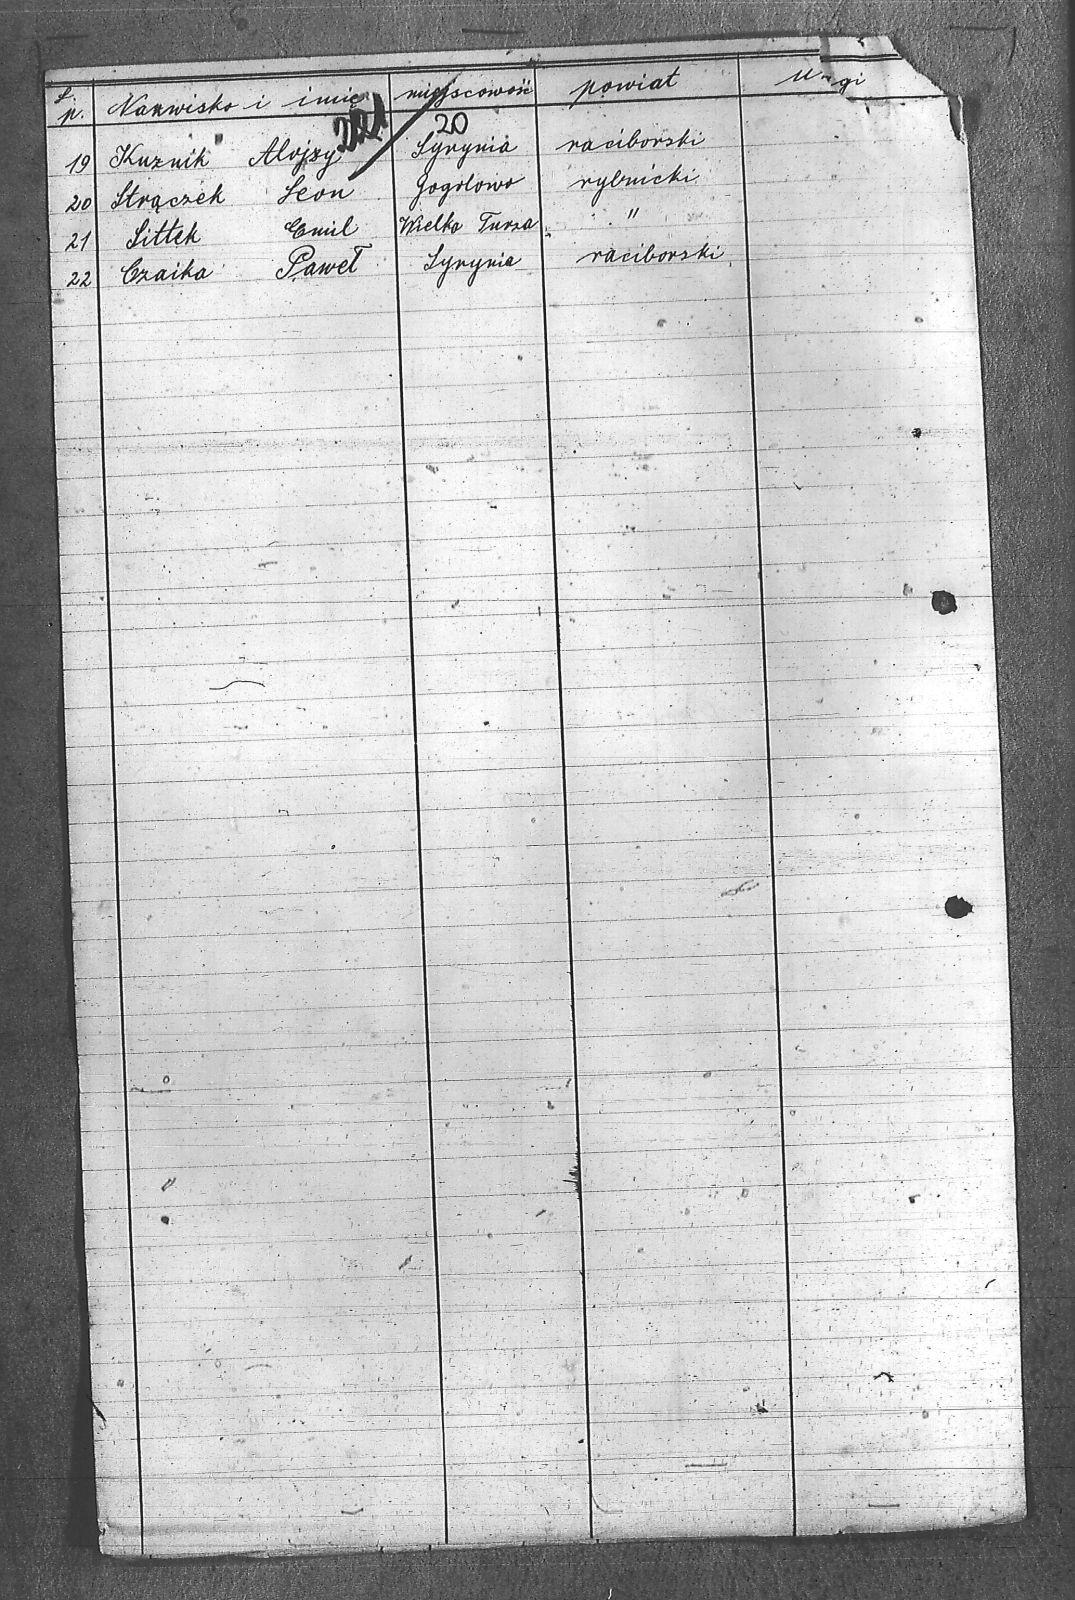 L. p. Nazwisko i imię miejscowość powiat Uwagi
221/20
19 Kuznik Alojzy Syrynia raciborski
20 Strączek Leon Gogołowo rybnicki
21 Sittek Emil Wielka Turza "
22 Czaika Paweł Syrynia raciborski